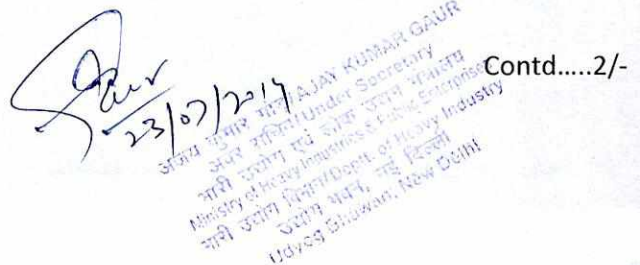 Gaur
23/07/2014
Contd.....2/-
अजय कुमार गौड़/AJAY KUMAR GAUR
अवर सचिव/Under Secretary
भारी उद्योग एवं लोक उद्यम मंत्रालय
Ministry of Heavy Industries & Public Enterprises
भारी उद्योग विभाग/Deptt. of Heavy Industry
उद्योग भवन, नई दिल्ली
Udyog Bhawan, New Delhi